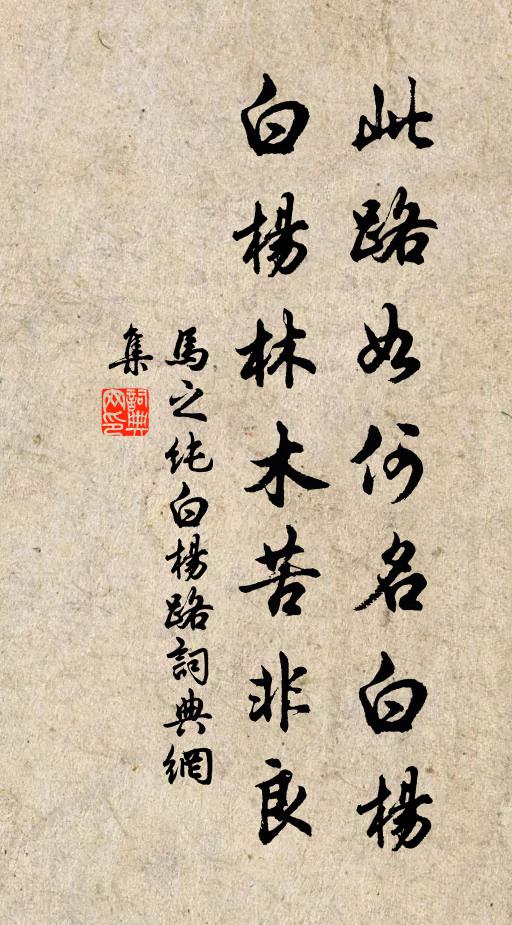 此路如何名白楊
白楊林木苦非良
馬之純白楊路詞典網
集
詞典網印